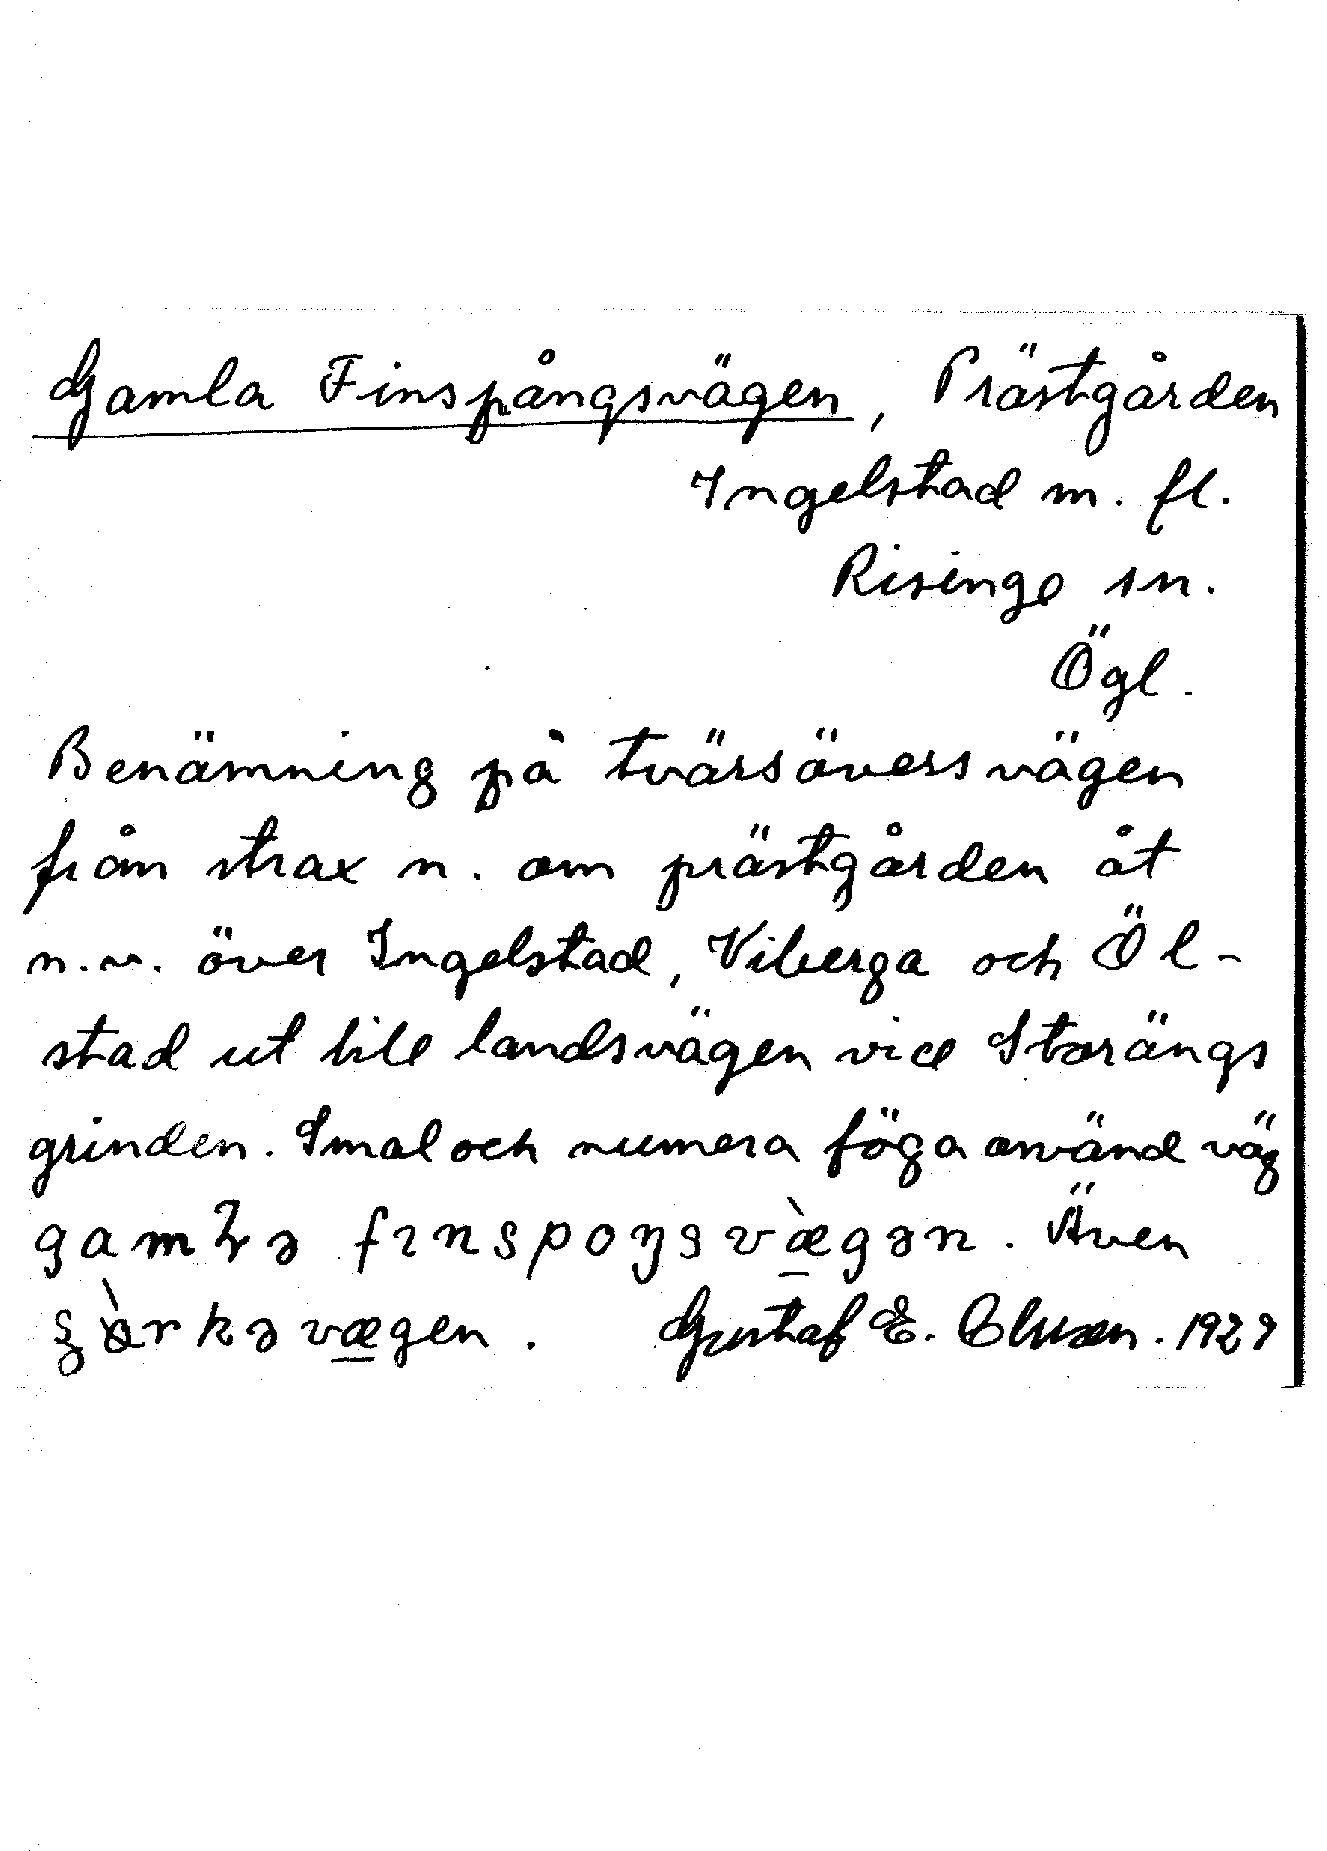 Gamla Finspångsvägen, Prästgården
Ingelstad m. fl.
Risinge sn.
Ögl.
Benämning på tvärsöversvägen
från strax n. om prästgården åt
n.v. över Ingelstad, Viberga och Öl-
stad ut till landsvägen vid Storängs
grinden. Smal och numera föga använd väg
Även
Gustaf E. 1929